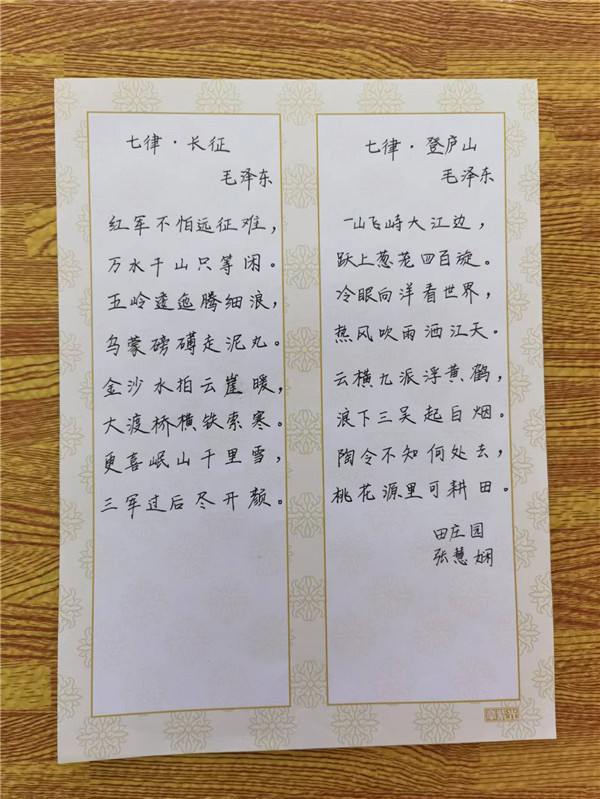 七律·长征
毛泽东
红军不怕远征难，
万水千山只等闲。
五岭逶迤腾细浪，
乌蒙磅礴走泥丸。
金沙水拍云崖暖，
大渡桥横铁索寒。
更喜岷山千里雪，
三军过后尽开颜。
七律·登庐山
毛泽东
一山飞峙大江边，
跃上葱茏四百旋。
冷眼向洋看世界，
热风吹雨洒江天。
云横九派浮黄鹤，
浪下三吴起白烟。
陶令不知何处去，
桃花源里可耕田。
田庄园
张慧娴